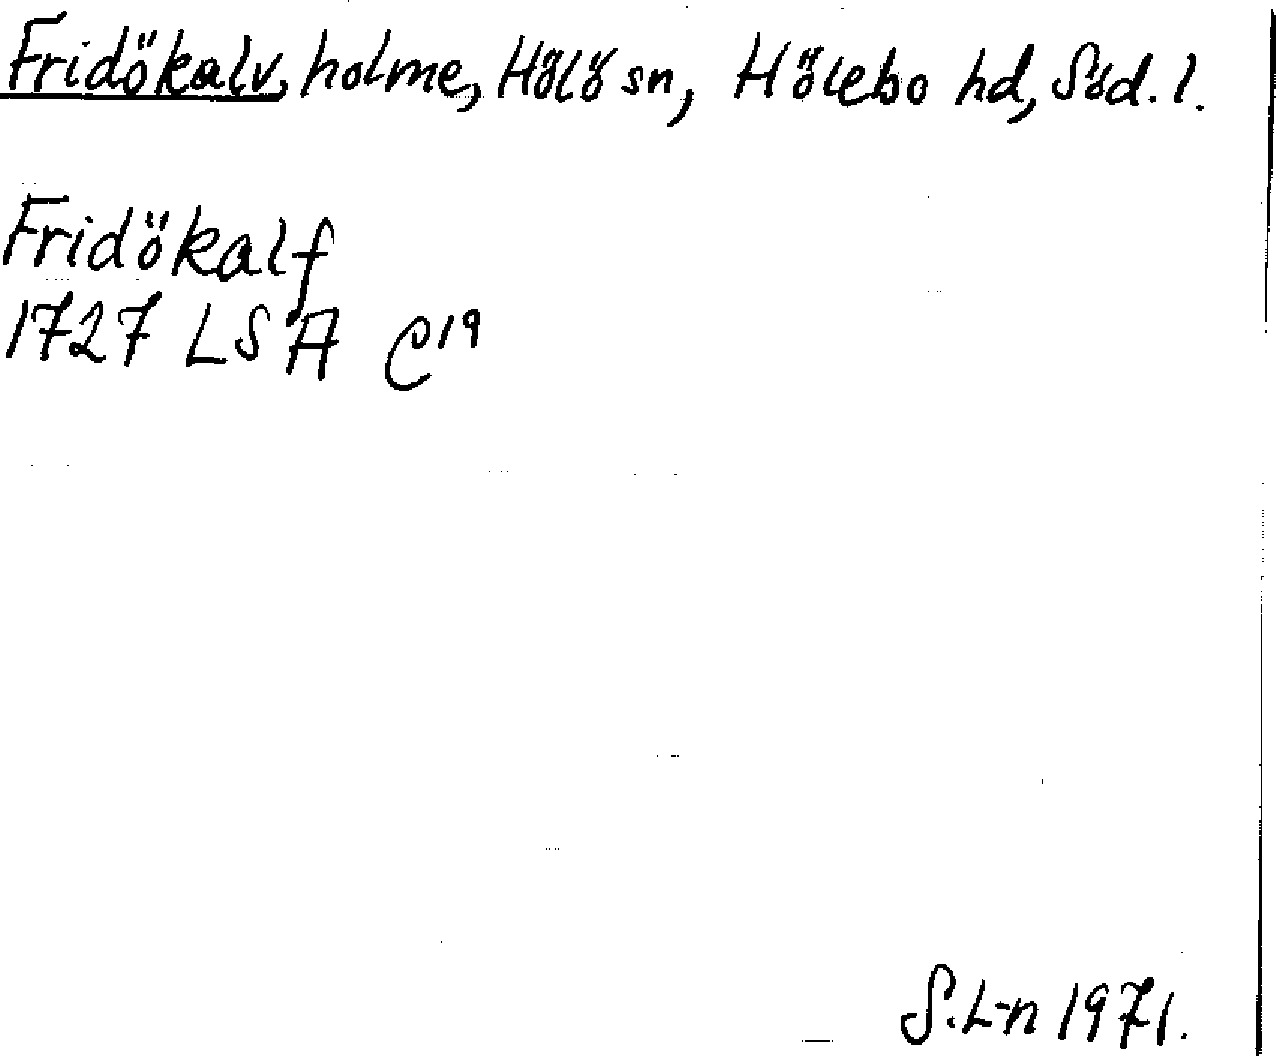 Fridökalv, holme, Hölö sn, Hölebo hd, Söd. l.
Fridökalf
1727 LSA C19
S.L-n 1971.